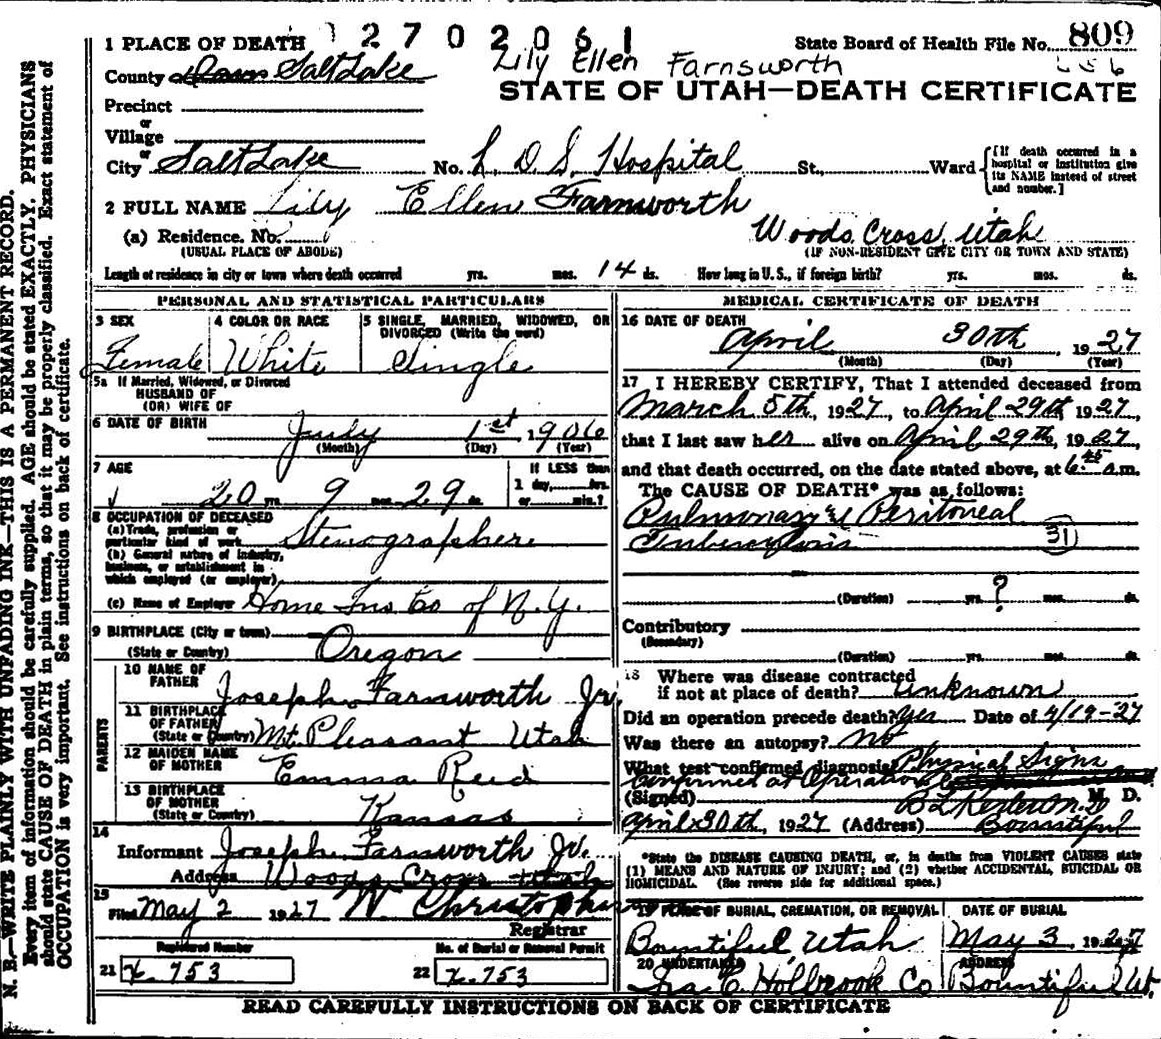 1 PLACE OF DEATH 2702061 State Board of Health File No. 809
Lily Ellen Farnsworth
County Davis Salt Lake
STATE OF UTAH—DEATH CERTIFICATE
Precinct
or
Village
or
City Salt Lake No. L. D. S. Hospital St. Ward [If death occurred in a hospital or institution give its NAME instead of street and number.]
2 FULL NAME Lily Ellen Farnworth
(a) Residence. No. Woods Cross, Utah
(USUAL PLACE OF ABODE) (IF NON-RESIDENT GIVE CITY OR TOWN AND STATE)
Length of residence in city or town where death occurred yrs. mos. 14 ds. How long in U. S., if foreign birth? yrs. mos. ds.
PERSONAL AND STATISTICAL PARTICULARS
3 SEX 4 COLOR OR RACE 5 SINGLE, MARRIED, WIDOWED, OR DIVORCED (Write the word)
Female White Single
5a If Married, Widowed, or Divorced
HUSBAND OF
(OR) WIFE OF
6 DATE OF BIRTH July 1st, 1906
(Month) (Day) (Year)
7 AGE If LESS than
20 yrs. 9 mos. 29 ds. 1 day, hrs. or min.?
8 OCCUPATION OF DECEASED
(a) Trade, profession or particular kind of work Stenographer
(b) General nature of industry, business, or establishment in which employed (or employer)
(c) Name of Employer Home Ins Co of N.Y.
9 BIRTHPLACE (City or town)
(State or Country) Oregon
PARENTS
10 NAME OF FATHER Joseph Farnworth Jr.
11 BIRTHPLACE OF FATHER (State or Country) Mt. Pleasant Utah
12 MAIDEN NAME OF MOTHER Emma Reid
13 BIRTHPLACE OF MOTHER (State or Country) Kansas
14
Informant Joseph Farnworth Jr.
Address Woods Cross Utah
15
Filed May 2 1927 W. Christopherson
Registrar
Registered Number No. of Burial or Removal Permit
21 X.753 22 X.753
MEDICAL CERTIFICATE OF DEATH
16 DATE OF DEATH
April 30th, 1927
(Month) (Day) (Year)
17 I HEREBY CERTIFY, That I attended deceased from
March 5th, 1927, to April 29th 1927,
that I last saw her alive on April 29th, 1927,
and that death occurred, on the date stated above, at 6:45 a.m.
The CAUSE OF DEATH* was as follows:
Pulmonary & Peritoneal
Tuberculosis 31
(Duration) yrs. ? mos. ds.
Contributory
(Secondary)
(Duration) yrs. mos. ds.
18 Where was disease contracted
if not at place of death? unknown
Did an operation precede death? Yes Date of 4/19-27
Was there an autopsy? No
What test confirmed diagnosis? Physical Signs
Confirmed at Operation
(Signed) M. D.
April 30th, 1927 (Address) Bountiful
*State the DISEASE CAUSING DEATH, or, in deaths from VIOLENT CAUSES state
(1) MEANS AND NATURE OF INJURY; and (2) whether ACCIDENTAL, SUICIDAL OR
HOMICIDAL. (See reverse side for additional space.)
19 PLACE OF BURIAL, CREMATION, OR REMOVAL DATE OF BURIAL
Bountiful, Utah May 3 1927
20 UNDERTAKER ADDRESS
Holbrook Co Bountiful Ut.
READ CAREFULLY INSTRUCTIONS ON BACK OF CERTIFICATE
N. B.—WRITE PLAINLY WITH UNFADING INK—THIS IS A PERMANENT RECORD.
Every item of information should be carefully supplied. AGE should be stated EXACTLY. PHYSICIANS
should state CAUSE OF DEATH in plain terms, so that it may be properly classified. Exact statement of
OCCUPATION is very important. See instructions on back of certificate.